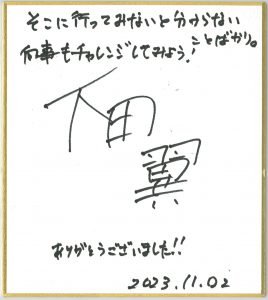 そこに行ってみないと分からない
ことばかり。
何事もチャレンジしてみよう!
翼
ありがとうございました!!
2023.11.02